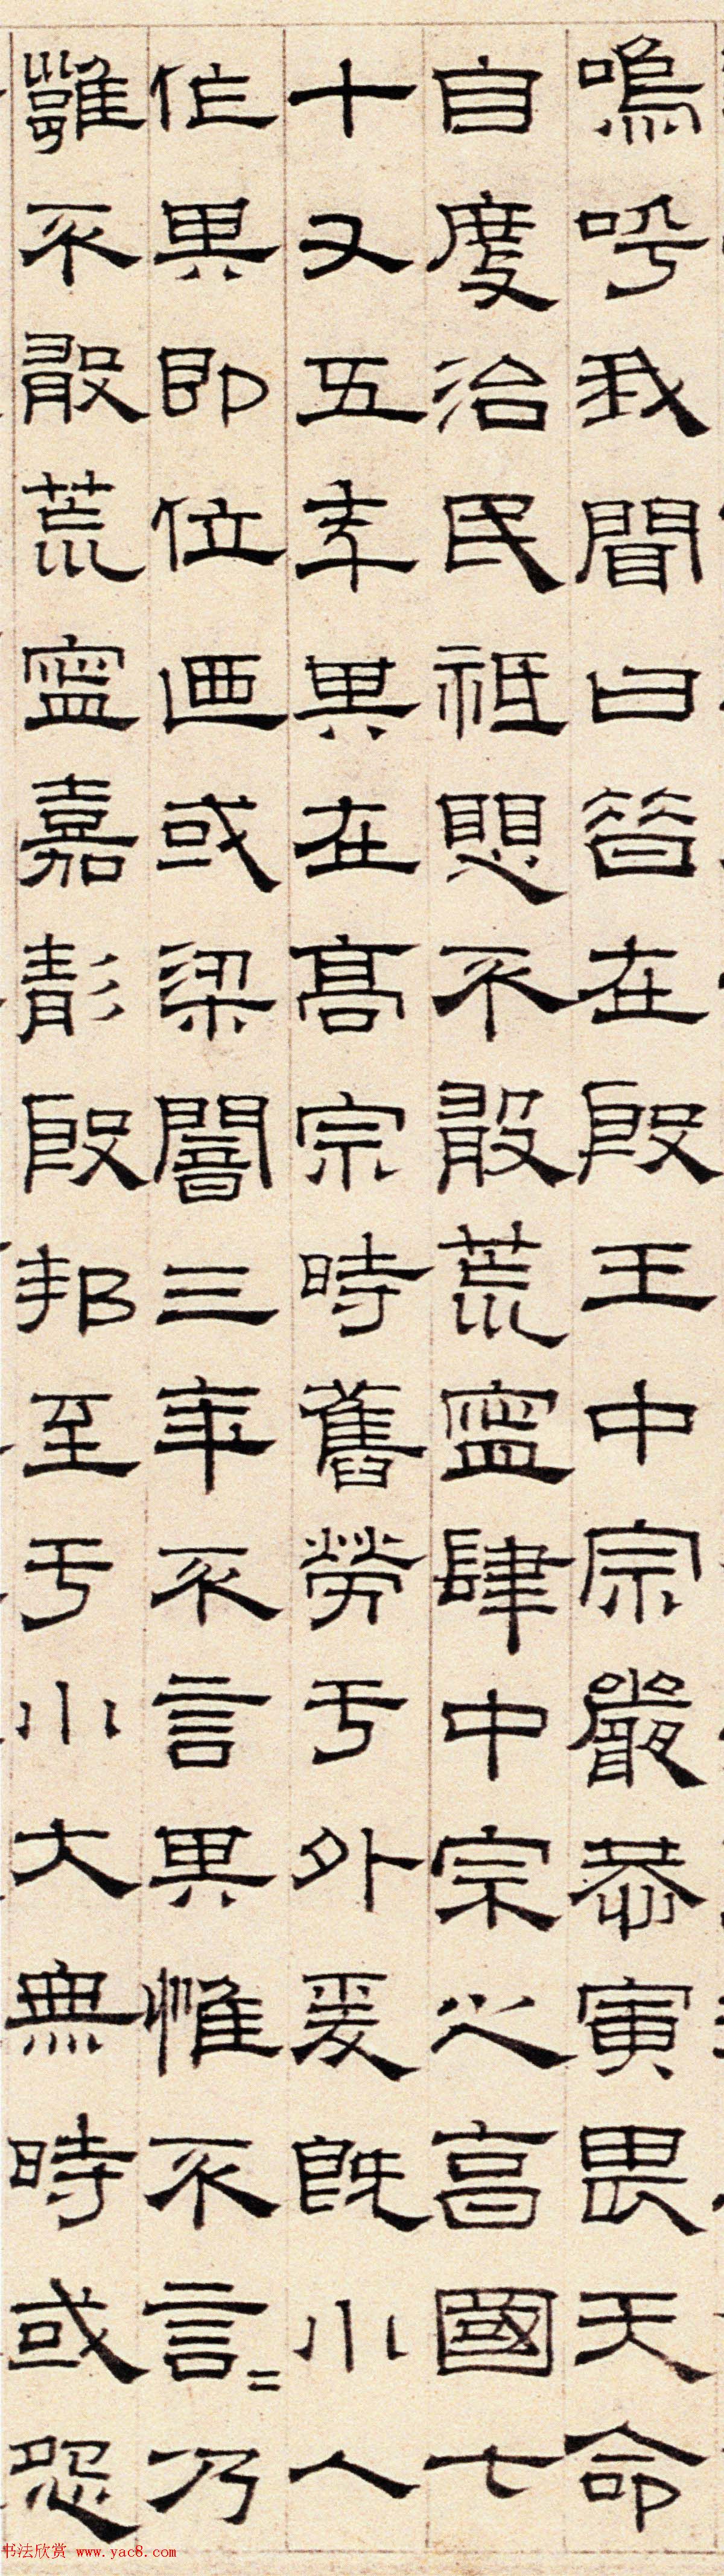 嗚呼我聞曰昔在殷王中宗嚴恭寅畏天命
自度治民祗愳不敢荒寧肆中宗之享國七
十又五年其在高宗時舊勞于外爰既小人
作其即位迺或梁闇三年不言其惟不言=乃
雝不敢荒寧嘉靖殷邦至于小大無時或怨
书法欣赏 www.yac8.com